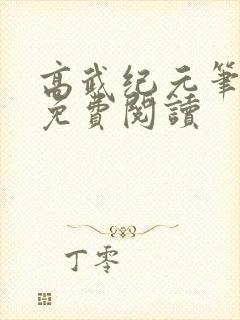 高武纪元笔
免費閱讀
丁零